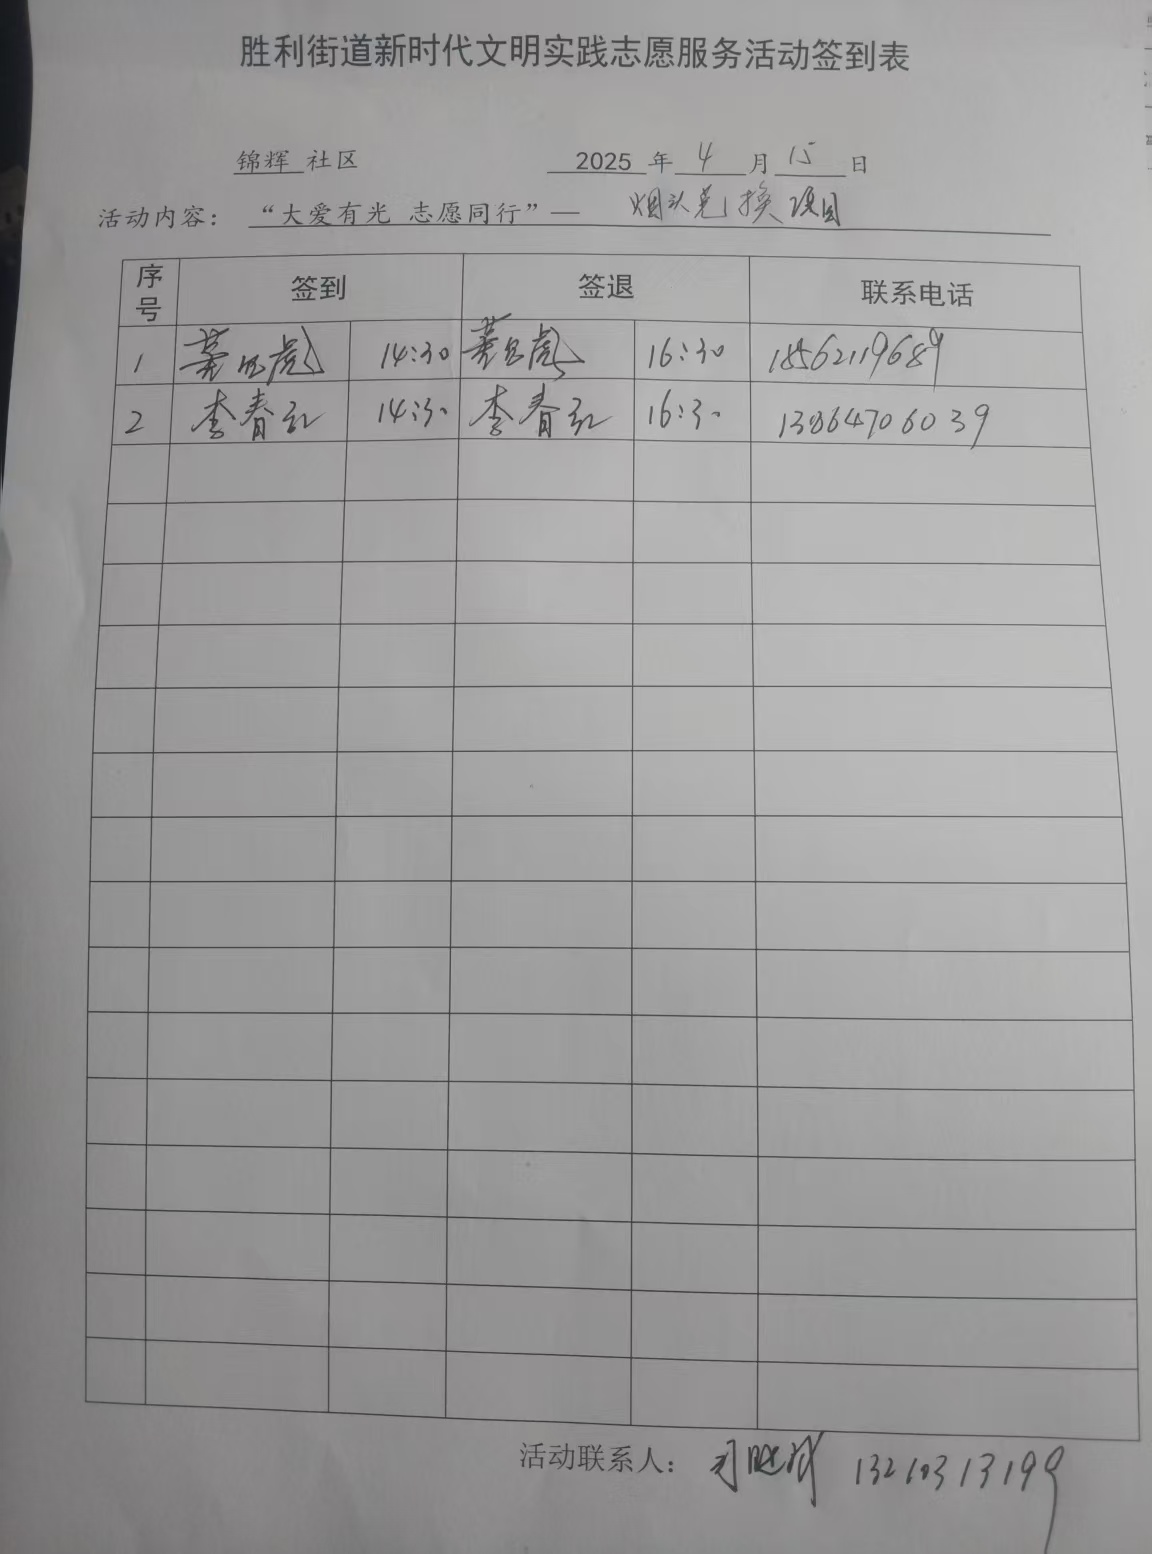 胜利街道新时代文明实践志愿服务活动签到表
锦辉 社区 2025 年 4 月 15 日
活动内容： “大爱有光 志愿同行”— 烟头兑换项目
序号 签到 签退 联系电话
1 14:30 16:30 18562119689
2 李春红 14:30 李春红 16:30 13864706039
活动联系人： 13210313199